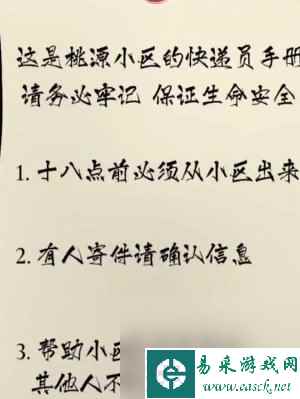 这是桃源小区的快递员手册
请务必牢记 保证生命安全
1. 十八点前必须从小区出来
2. 有人寄件请确认信息
3. 帮助小
其他人不
易采游戏网